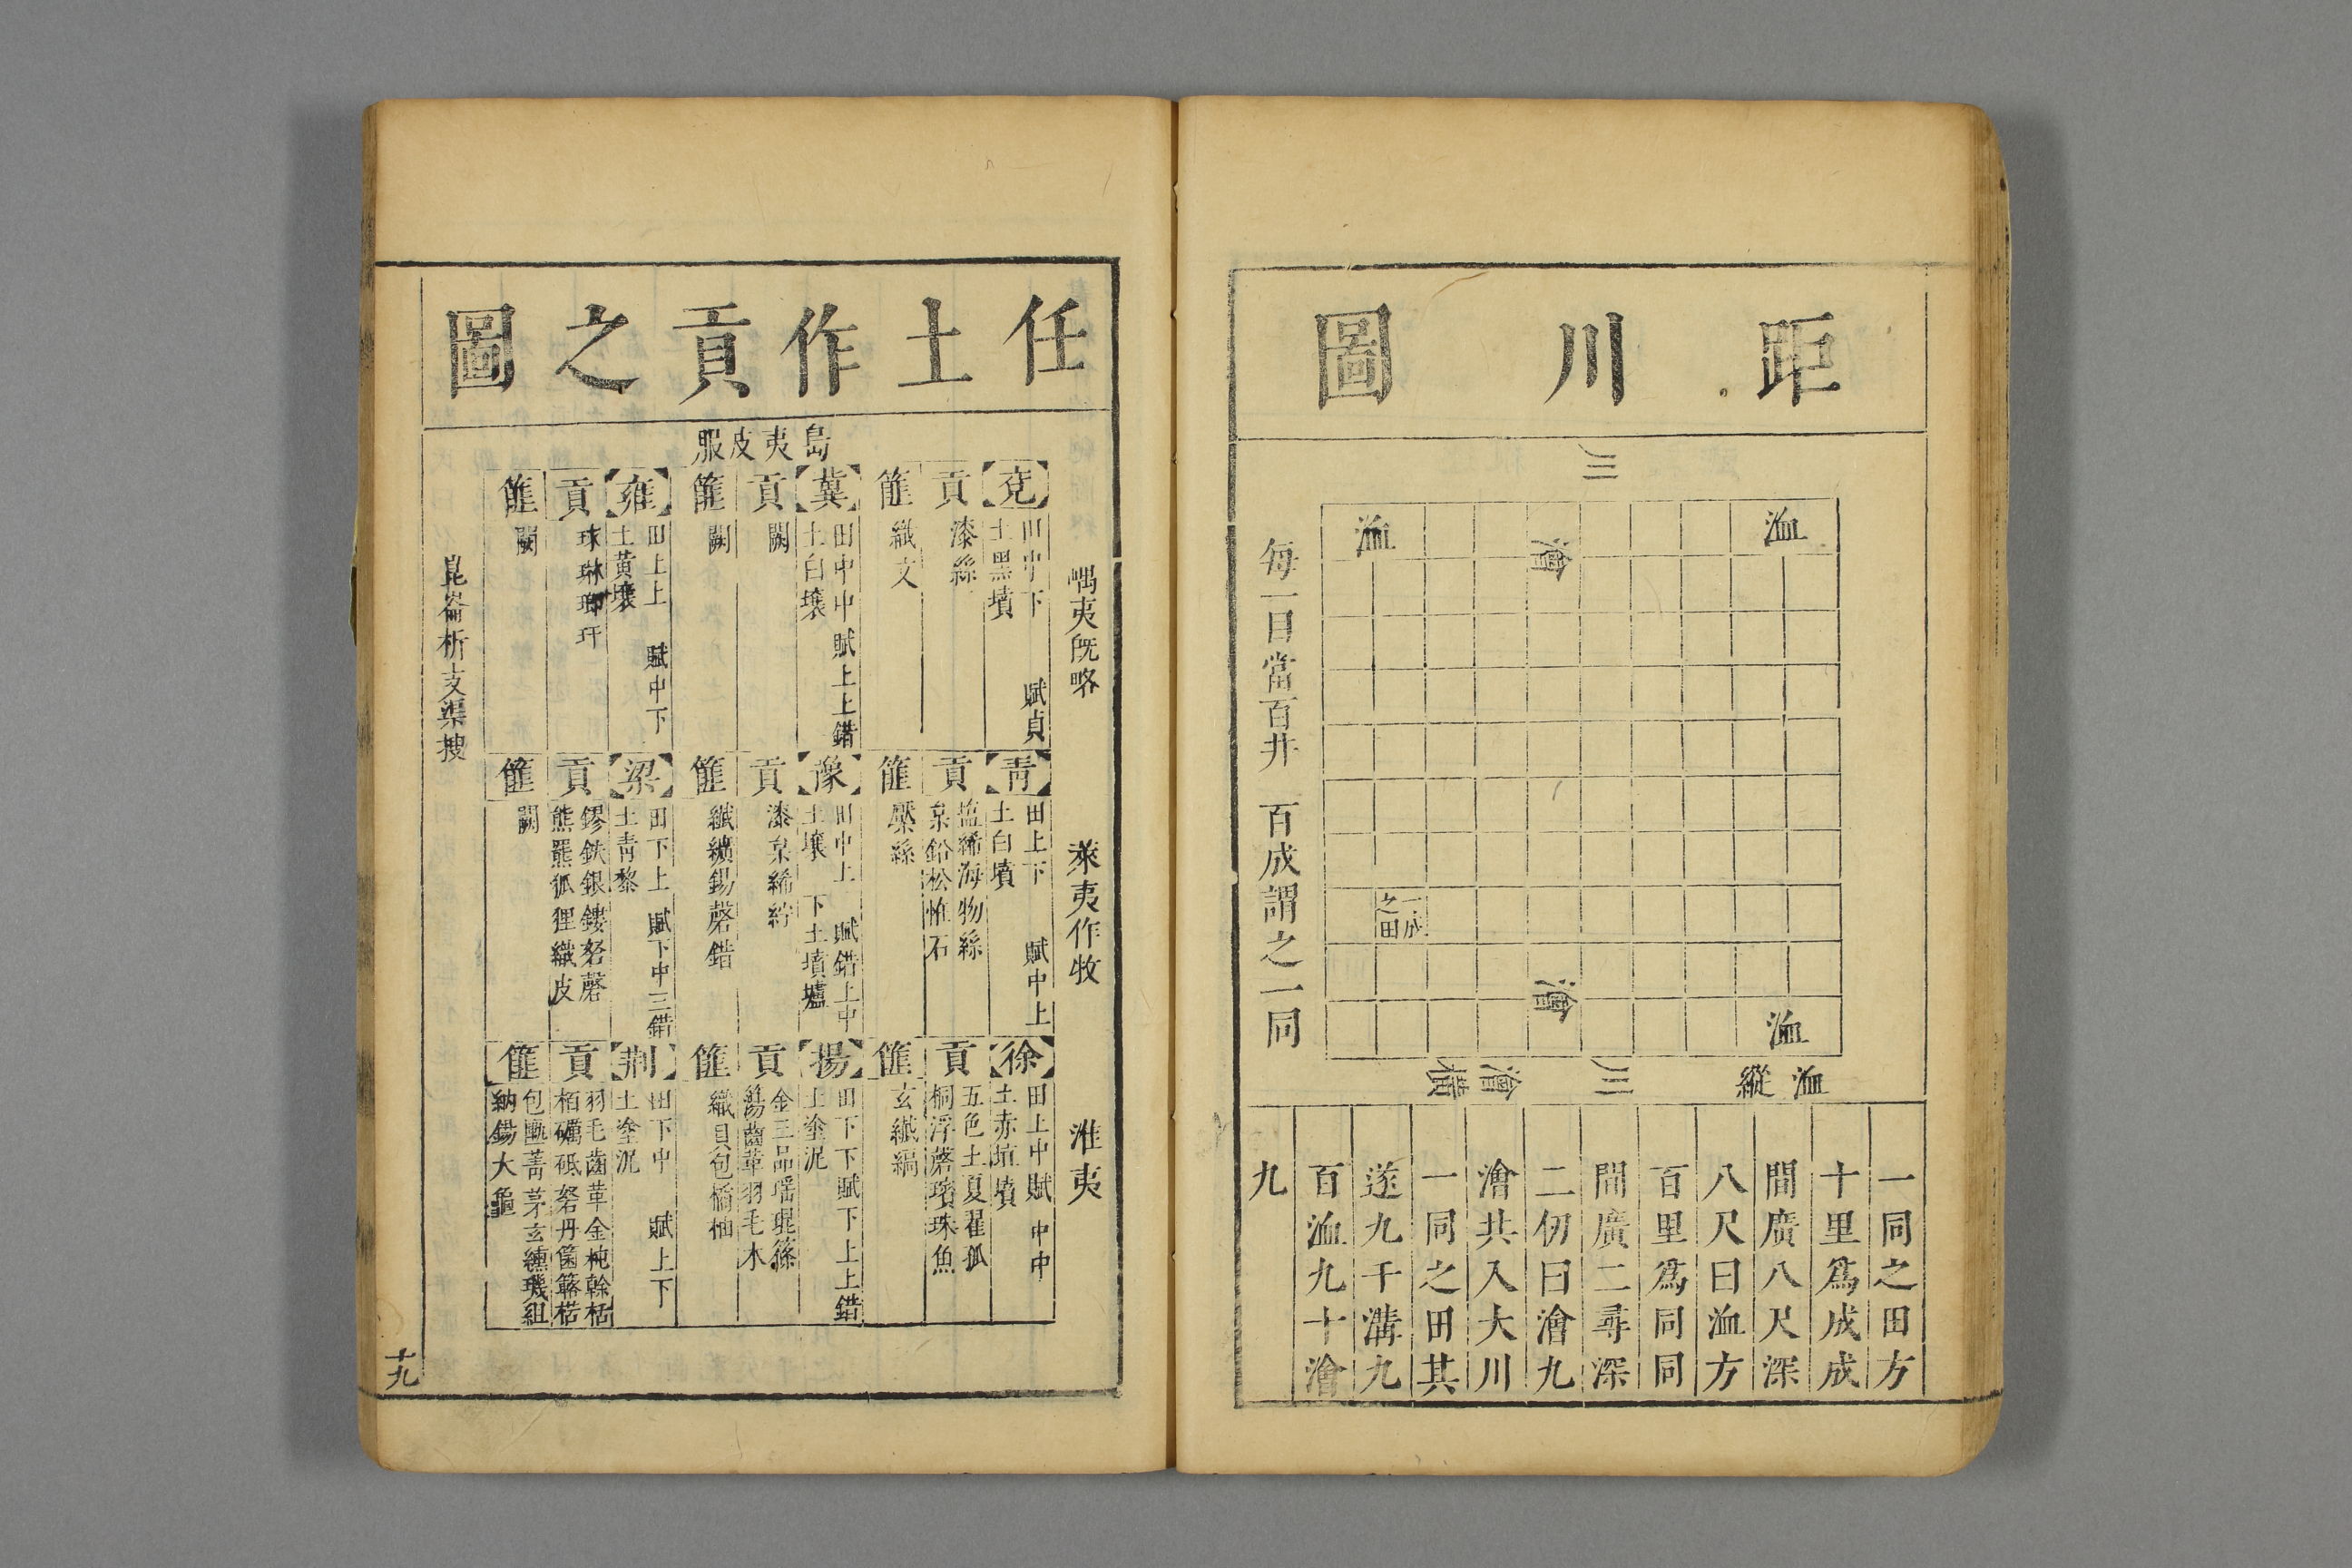 距川圖
川
洫
澮
洫
一成
之田
澮
洫
洫縱
川
澮橫
每一目當百井 百成謂之一同
一同之田方
十里爲成成
間廣八尺深
八尺曰洫方
百里爲同同
間廣二尋深
二仞曰澮九
澮共入大川
一同之田其
遂九千溝九
百洫九十澮
九
任土作貢之圖
嵎夷旣略
萊夷作牧
淮夷
島夷皮服
兗
田中下 賦貞
土黑墳
貢
漆絲
篚
織文
冀
田中中賦上上錯
土白壤
貢
闕
篚
闕
雍
田上上 賦中下
土黃壤
貢
球琳瑯玕
篚
闕
青
田上下 賦中上
土白墳
貢
塩絺海物絲
枲鉛松怪石
篚
檿絲
豫
田中上 賦錯上中
土壤 下土墳壚
貢
漆枲絺紵
篚
纖纊錫磬錯
梁
田下上 賦下中三錯
土青黎
貢
鏐鉄銀鏤砮磬
熊羆狐狸織皮
篚
闕
徐
田上中賦中中
土赤埴墳
貢
五色土夏翟狐
桐浮磬蠙珠魚
篚
玄纖縞
揚
田下下賦下上上錯
土塗泥
貢
金三品瑶琨篠
簜齒革羽毛木
篚
織貝包橘柚
荆
田下中 賦上下
土塗泥
貢
羽毛齒革金杶榦栝
栢礪砥砮丹箘簵楛
篚
包匭菁茅玄纁璣組
納錫大龜
崑崙析支渠搜
十九